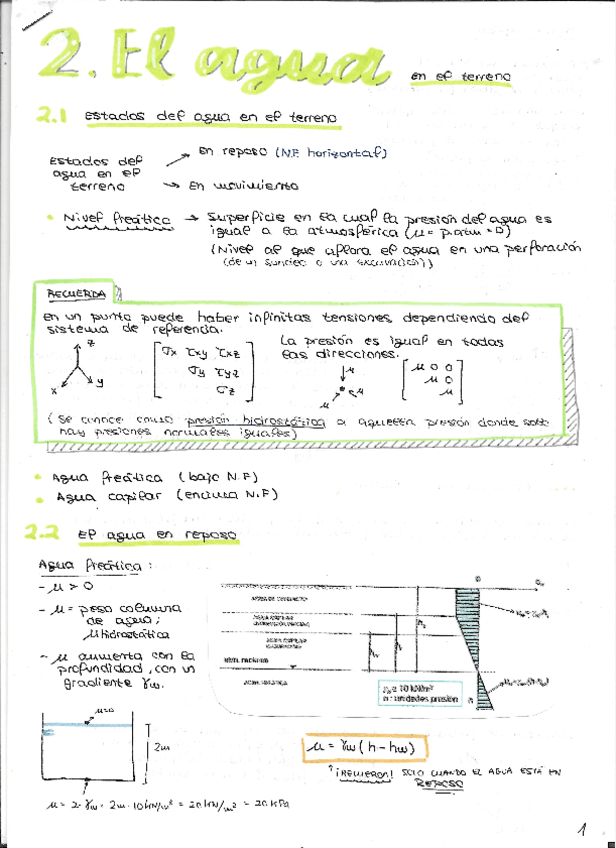 2. El agua en el terreno
2.1 Estados del agua en el terreno
Estados del agua en el terreno
→ En reposo (N.F. horizontal)
→ En movimiento
• Nivel freático → Superficie en la cual la presión del agua es
igual a la atmosférica (u = patm = 0)
(Nivel al que aflora el agua en una perforación
(de un sondeo o una excavación))
RECUERDA
En un punto puede haber infinitas tensiones dependiendo del
sistema de referencia.
z
x
y
σx τxy τxz
σy τyz
σz
La presión es igual en todas
las direcciones.
u
u
u
u 0 0
u 0
u
(Se conoce como presión hidrostática a aquella presión donde solo
hay presiones normales iguales)
• Agua freática (bajo N.F)
• Agua capilar (encima N.F)
2.2 El agua en reposo
Agua freática:
- u > 0
- u = peso columna
de agua;
u hidrostática
- u aumenta con la
profundidad, con un
gradiente γw.
NIVEL FREÁTICO
γw = 10 kN/m³
u: unidades presión
u=0
2m
u = γw (h - hw)
↑ ¡RECUERDA! SOLO CUANDO EL AGUA ESTÁ EN
REPOSO
u = 2 · γw = 2m · 10 kN/m³ = 20 kN/m² = 20 kPa
1